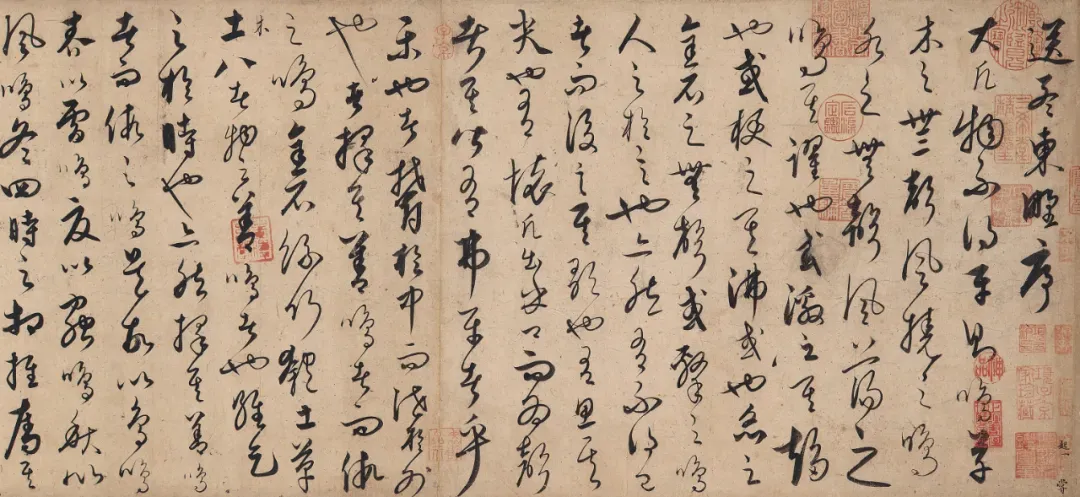 送孟東野序
大凡物不得平則鳴草
木之無聲風撓之鳴
水之無聲風蕩之
鳴其躍也或激之其趨
也或梗之其沸或也炙之
金石之無聲或擊之鳴
人之於言也亦然有不得已
者而後言其歌也有思其
哭也有懷凡出乎口而為聲
者其皆有弗平者乎
樂也者鬱於中而泄於外
也者擇其善鳴者而假
之鳴金石絲竹匏土革
木
土八者物之善鳴者也維天
之於時也亦然擇其善鳴
者而假之鳴是故以鳥鳴
春以雷鳴夏以蟲鳴秋以
風鳴冬四時之相推奪其